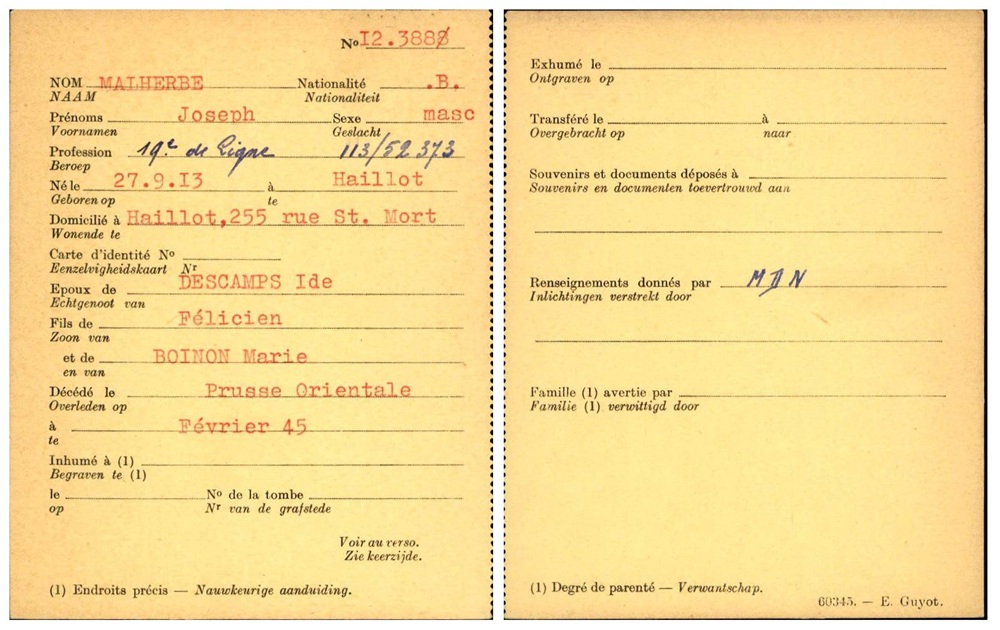 Nº 12.3888
NOM MALHERBE Nationalité .B.
NAAM Nationaliteit
Prénoms Joseph Sexe masc
Voornamen Geslacht
Profession 19e de Ligne 113/52373
Beroep
Né le 27.9.I3 à Haillot
Geboren op te
Domicilié à Haillot,255 rue St. Mort
Wonende te
Carte d'identité Nº
Eenzelvigheidskaart Nr
Epoux de DESCAMPS Ide
Echtgenoot van
Fils de Félicien
Zoon van
et de BOINON Marie
en van
Décédé le Prusse Orientale
Overleden op
à Février 45
te
Inhumé à (1)
Begraven te (1)
le Nº de la tombe
op Nr van de grafstede
Voir au verso.
Zie keerzijde.
(1) Endroits précis — Nauwkeurige aanduiding.
Exhumé le
Ontgraven op
Transféré le à
Overgebracht op naar
Souvenirs et documents déposés à
Souvenirs en documenten toevertrouwd aan
Renseignements donnés par MDN
Inlichtingen verstrekt door
Famille (1) avertie par
Familie (1) verwittigd door
(1) Degré de parenté — Verwantschap.
60345. — E. Guyot.